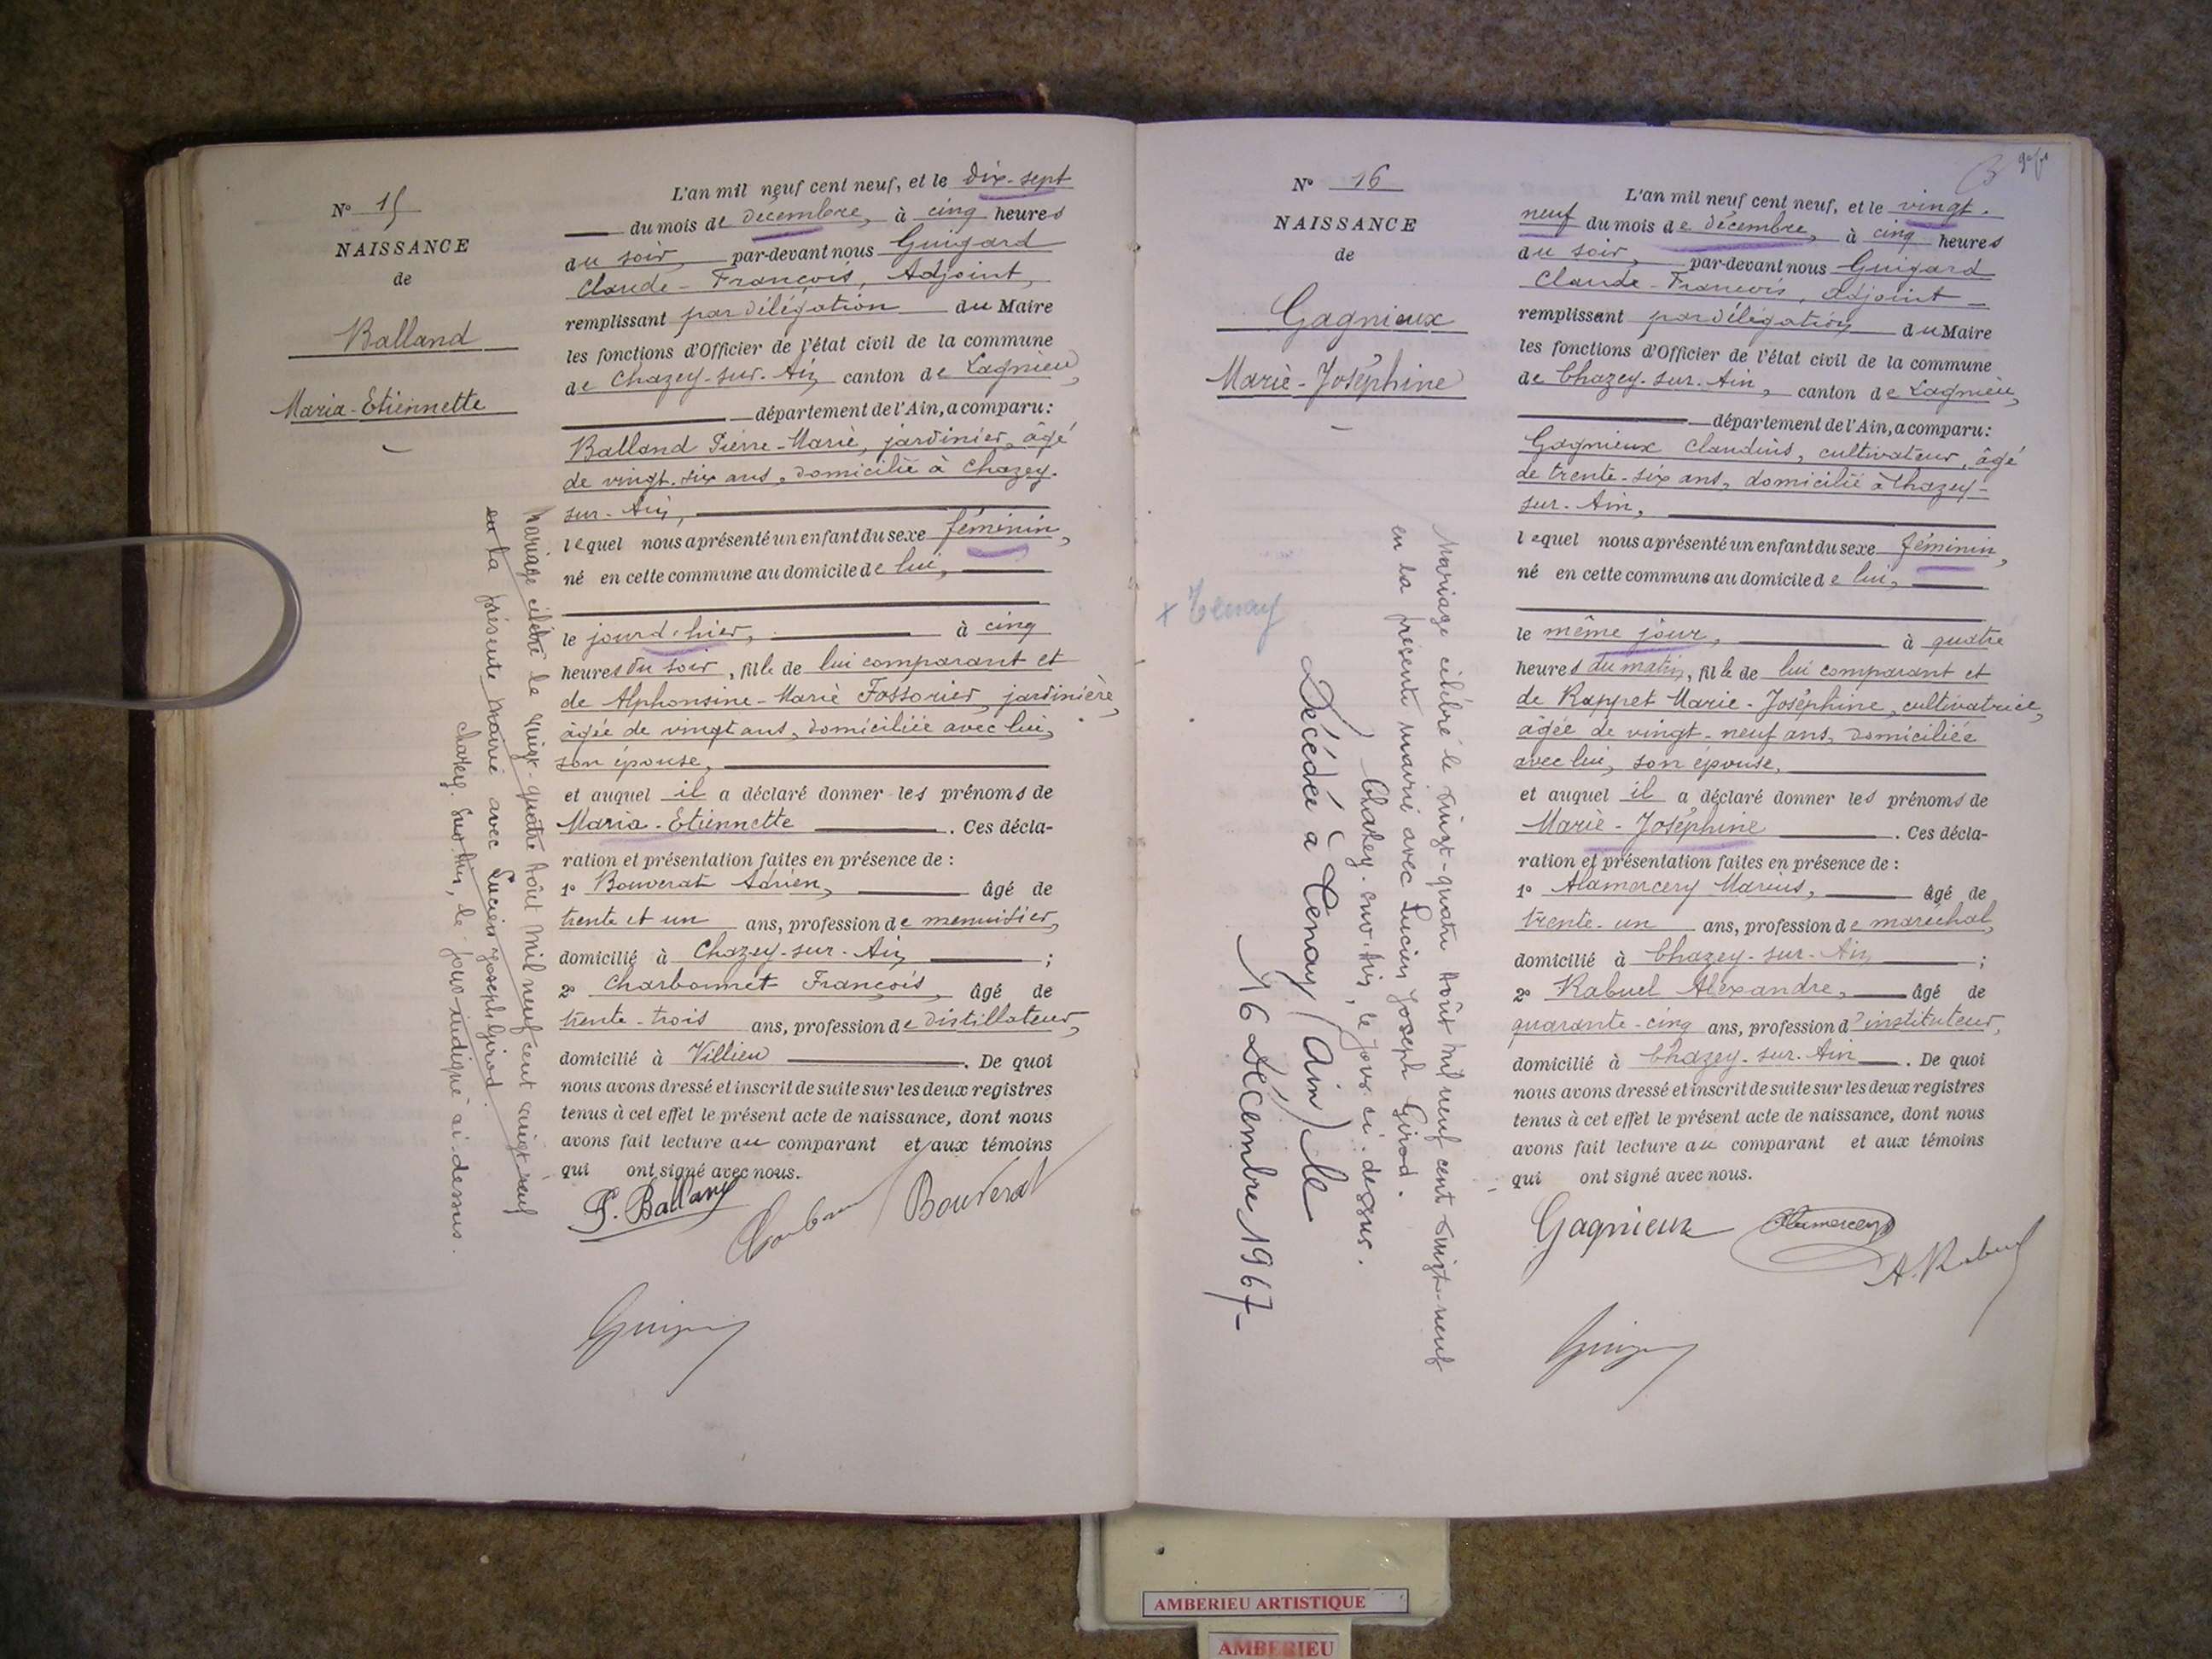 N° 15
NAISSANCE
de
Balland
Maria-Etiennette
L'an mil neuf cent neuf, et le dix-sept
du mois de décembre, à cinq heures
du soir, par-devant nous Guigard
Claude-François, Adjoint,
remplissant par délégation du Maire
les fonctions d'Officier de l'état civil de la commune
de Chazey-sur-Ain, canton de Lagnieu,
département de l'Ain, a comparu:
Balland Pierre-Marie, jardinier, âgé
de vingt-six ans, domicilié à Chazey-
sur-Ain,
lequel nous a présenté un enfant du sexe féminin,
né en cette commune au domicile de lui,
le jour d'hier, à cinq
heures du soir, fille de lui comparant et
de Alphonsine-Marie Fossorier, jardinière,
âgée de vingt ans, domiciliée avec lui,
son épouse,
et auquel il a déclaré donner les prénoms de
Maria-Etiennette. Ces décla-
ration et présentation faites en présence de :
1° Bouverat Adrien, âgé de
trente et un ans, profession de menuisier,
domicilié à Chazey-sur-Ain ;
2° Charbonnet François, âgé de
trente-trois ans, profession de distillateur,
domicilié à Villieu. De quoi
nous avons dressé et inscrit de suite sur les deux registres
tenus à cet effet le présent acte de naissance, dont nous
avons fait lecture au comparant et aux témoins
qui ont signé avec nous.
P. Balland
Bouverat
Mariage célébré le vingt-quatre Août mil neuf cent vingt-neuf
en la présente mairie avec Lucien Joseph Girod.
Chazey-sur-Ain, le jour indiqué ci-dessus.
N° 16
NAISSANCE
de
Gagnieux
Marie-Joséphine
L'an mil neuf cent neuf, et le vingt-
neuf du mois de décembre, à cinq heures
du soir, par-devant nous Guigard
Claude-François, adjoint
remplissant par délégation du Maire
les fonctions d'Officier de l'état civil de la commune
de Chazey-sur-Ain, canton de Lagnieu,
département de l'Ain, a comparu:
Gagnieux Claudius, cultivateur, âgé
de trente-six ans, domicilié à Chazey-
sur-Ain,
lequel nous a présenté un enfant du sexe féminin,
né en cette commune au domicile de lui,
le même jour, à quatre
heures du matin, fille de lui comparant et
de Rappet Marie-Joséphine, cultivatrice,
âgée de vingt-neuf ans, domiciliée
avec lui, son épouse,
et auquel il a déclaré donner les prénoms de
Marie-Joséphine. Ces décla-
ration et présentation faites en présence de :
1° Alamercery Marius, âgé de
trente-un ans, profession de maréchal,
domicilié à Chazey-sur-Ain ;
2° Rabuel Alexandre, âgé de
quarante-cinq ans, profession d'instituteur,
domicilié à Chazey-sur-Ain. De quoi
nous avons dressé et inscrit de suite sur les deux registres
tenus à cet effet le présent acte de naissance, dont nous
avons fait lecture au comparant et aux témoins
qui ont signé avec nous.
Gagnieux Alamercery
A. Rabuel
Mariage célébré le vingt-quatre Août mil neuf cent vingt-neuf
en la présente mairie avec Lucien Joseph Girod.
Chazey-sur-Ain, le jour ci-dessus.
+ Tenay
Décédée à Tenay (Ain) le
16 Décembre 1967-
AMBERIEU ARTISTIQUE
AMBERIEU